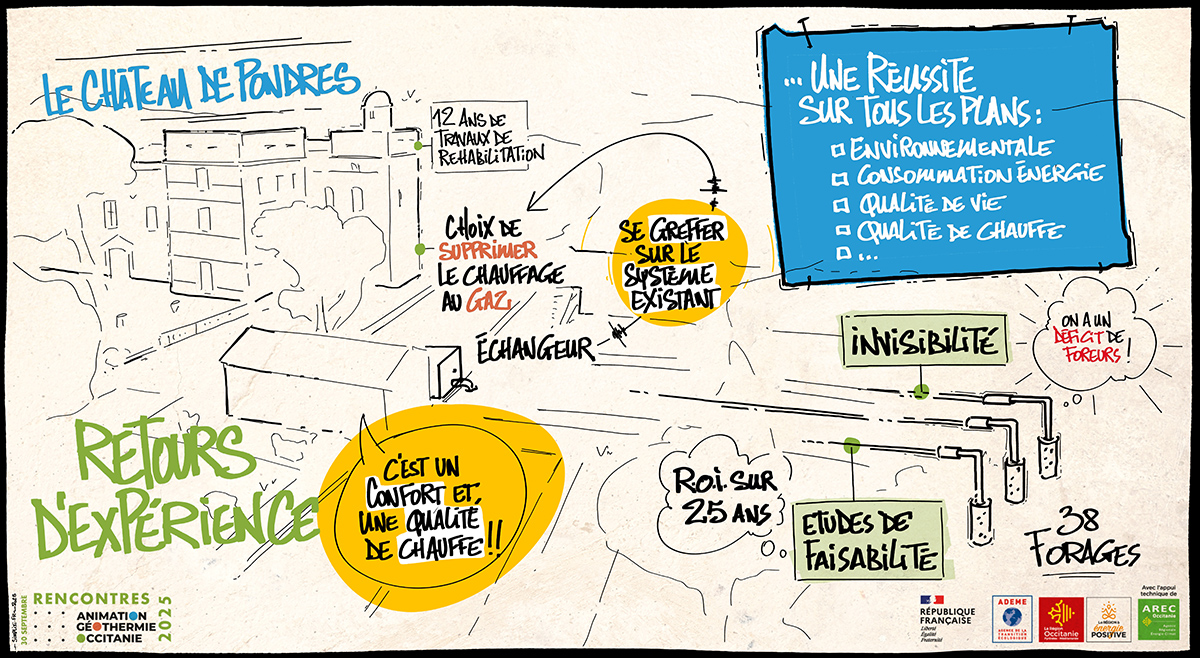 LE CHÂTEAU DE PONDRES
12 ANS DE
TRAVAUX DE
REHABILITATION
CHOIX DE
SUPPRIMER
LE CHAUFFAGE
AU GAZ
SE GREFFER
SUR LE
SYSTÈME
EXISTANT
ÉCHANGEUR
... UNE RÉUSSITE
SUR TOUS LES PLANS :
ENVIRONNEMENTALE
CONSOMMATION ÉNERGIE
QUALITÉ DE VIE
QUALITÉ DE CHAUFFE
...
INVISIBILITÉ
ON A UN
DÉFICIT DE
FOREURS !
RETOURS
D'EXPÉRIENCE
C'EST UN
CONFORT ET,
UNE QUALITÉ
DE CHAUFFE !!
R.O.I. SUR
25 ANS
ETUDES DE
FAISABILITÉ
38
FORAGES
30 SEPTEMBRE
RENCONTRES
ANIMATION
GÉOTHERMIE
OCCITANIE
2025
RÉPUBLIQUE
FRANÇAISE
Liberté
Égalité
Fraternité
ADEME
AGENCE DE LA
TRANSITION
ÉCOLOGIQUE
La Région
Occitanie
Pyrénées - Méditerranée
LA RÉGION À
énergie
POSITIVE
Avec l'appui
technique de
AREC
Occitanie